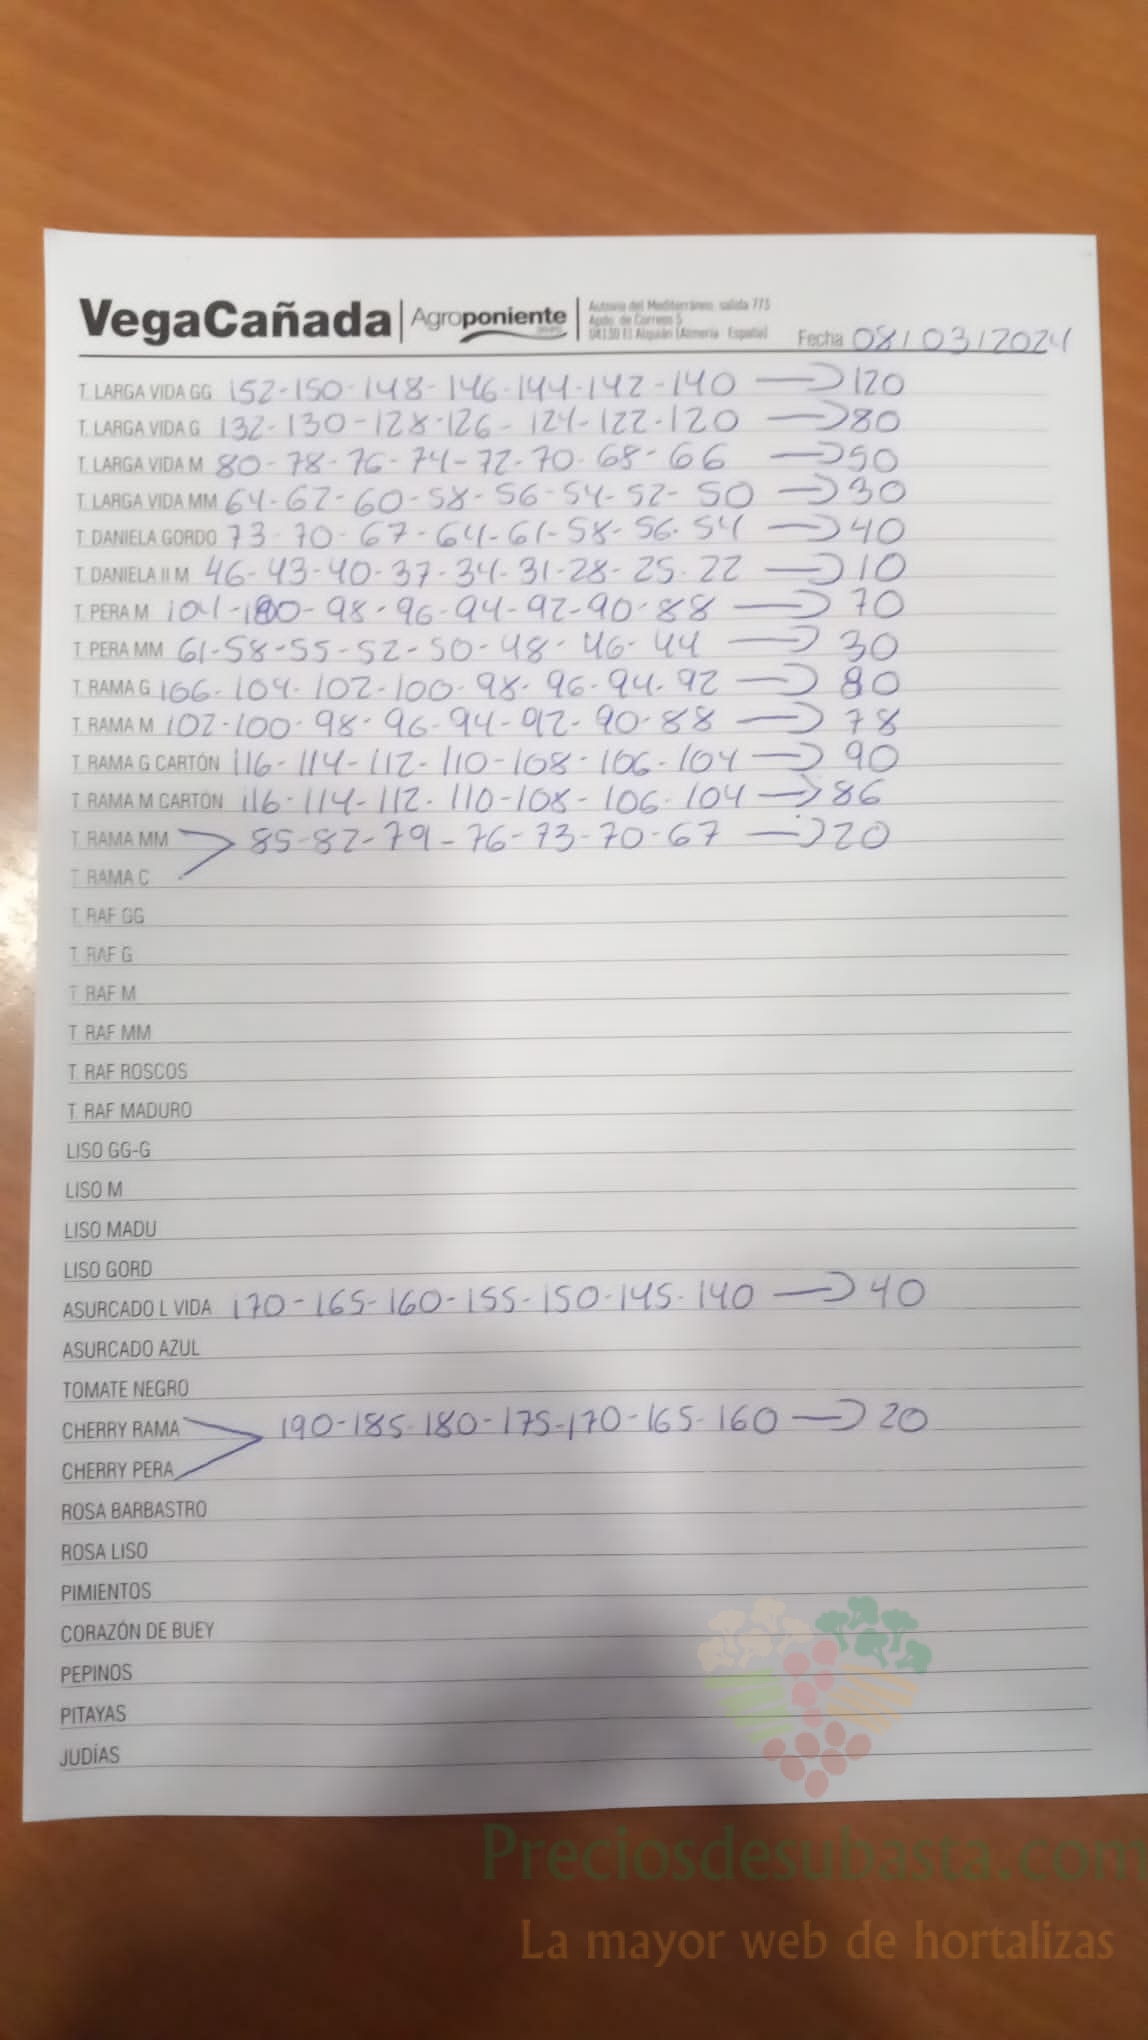 VegaCañada | Agroponiente
Autovía del Mediterráneo, salida 775
Apdo. de Correos 5
04130 El Alquián (Almería España)
Fecha 08/03/2024
T. LARGA VIDA GG 152-150-148-146-144-142-140 → 120
T. LARGA VIDA G 132-130-128-126-124-122-120 → 80
T. LARGA VIDA M 80-78-76-74-72-70-68-66 → 50
T. LARGA VIDA MM 64-62-60-58-56-54-52-50 → 30
T. DANIELA GORDO 73-70-67-64-61-58-56-54 → 40
T. DANIELA II M 46-43-40-37-34-31-28-25-22 → 10
T. PERA M 104-100-98-96-94-92-90-88 → 70
T. PERA MM 61-58-55-52-50-48-46-44 → 30
T. RAMA G 106-104-102-100-98-96-94-92 → 80
T. RAMA M 102-100-98-96-94-92-90-88 → 78
T. RAMA G CARTÓN 116-114-112-110-108-106-104 → 90
T. RAMA M CARTÓN 116-114-112-110-108-106-104 → 86
T. RAMA MM 85-82-79-76-73-70-67 → 20
T. RAMA C
T. RAF GG
T. RAF G
T. RAF M
T. RAF MM
T. RAF ROSCOS
T. RAF MADURO
LISO GG-G
LISO M
LISO MADU
LISO GORD
ASURCADO L VIDA 170-165-160-155-150-145-140 → 40
ASURCADO AZUL
TOMATE NEGRO
CHERRY RAMA 190-185-180-175-170-165-160 → 20
CHERRY PERA
ROSA BARBASTRO
ROSA LISO
PIMIENTOS
CORAZÓN DE BUEY
PEPINOS
PITAYAS
JUDÍAS
Preciosdesubasta.com
La mayor web de hortalizas